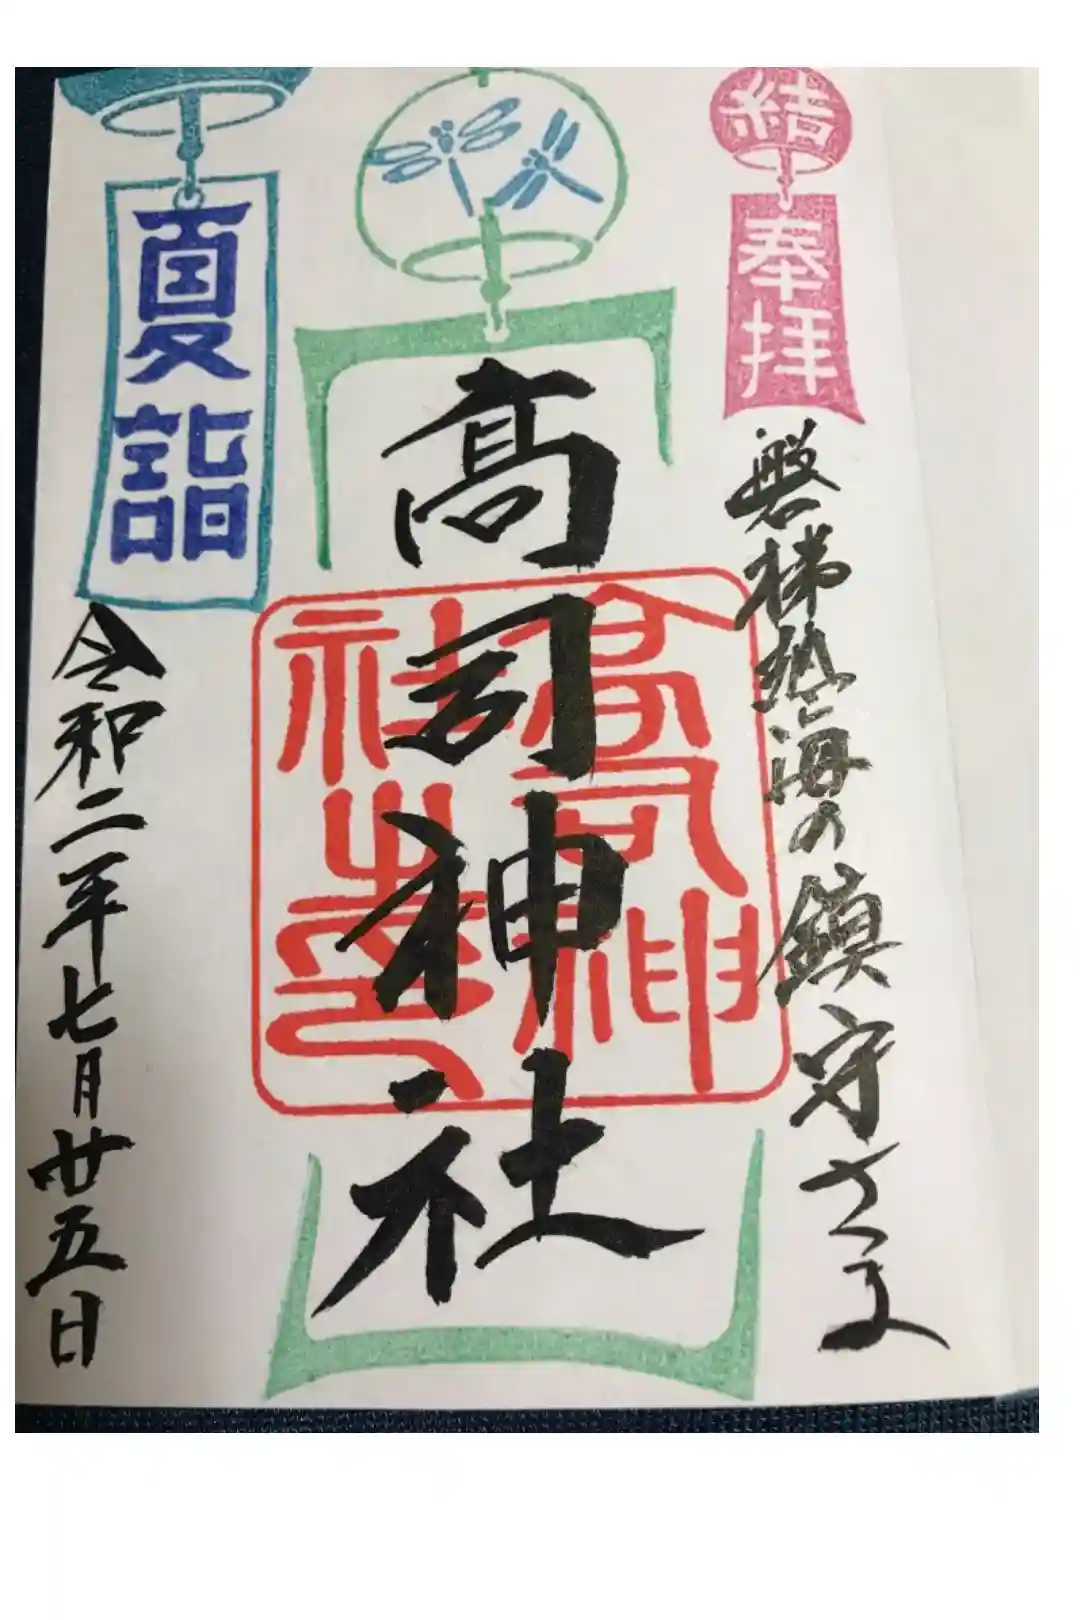 結
奉拝
磐梯熱海の鎮守さま
高司神社
高司神
社之印
夏詣
令和二年七月廿五日